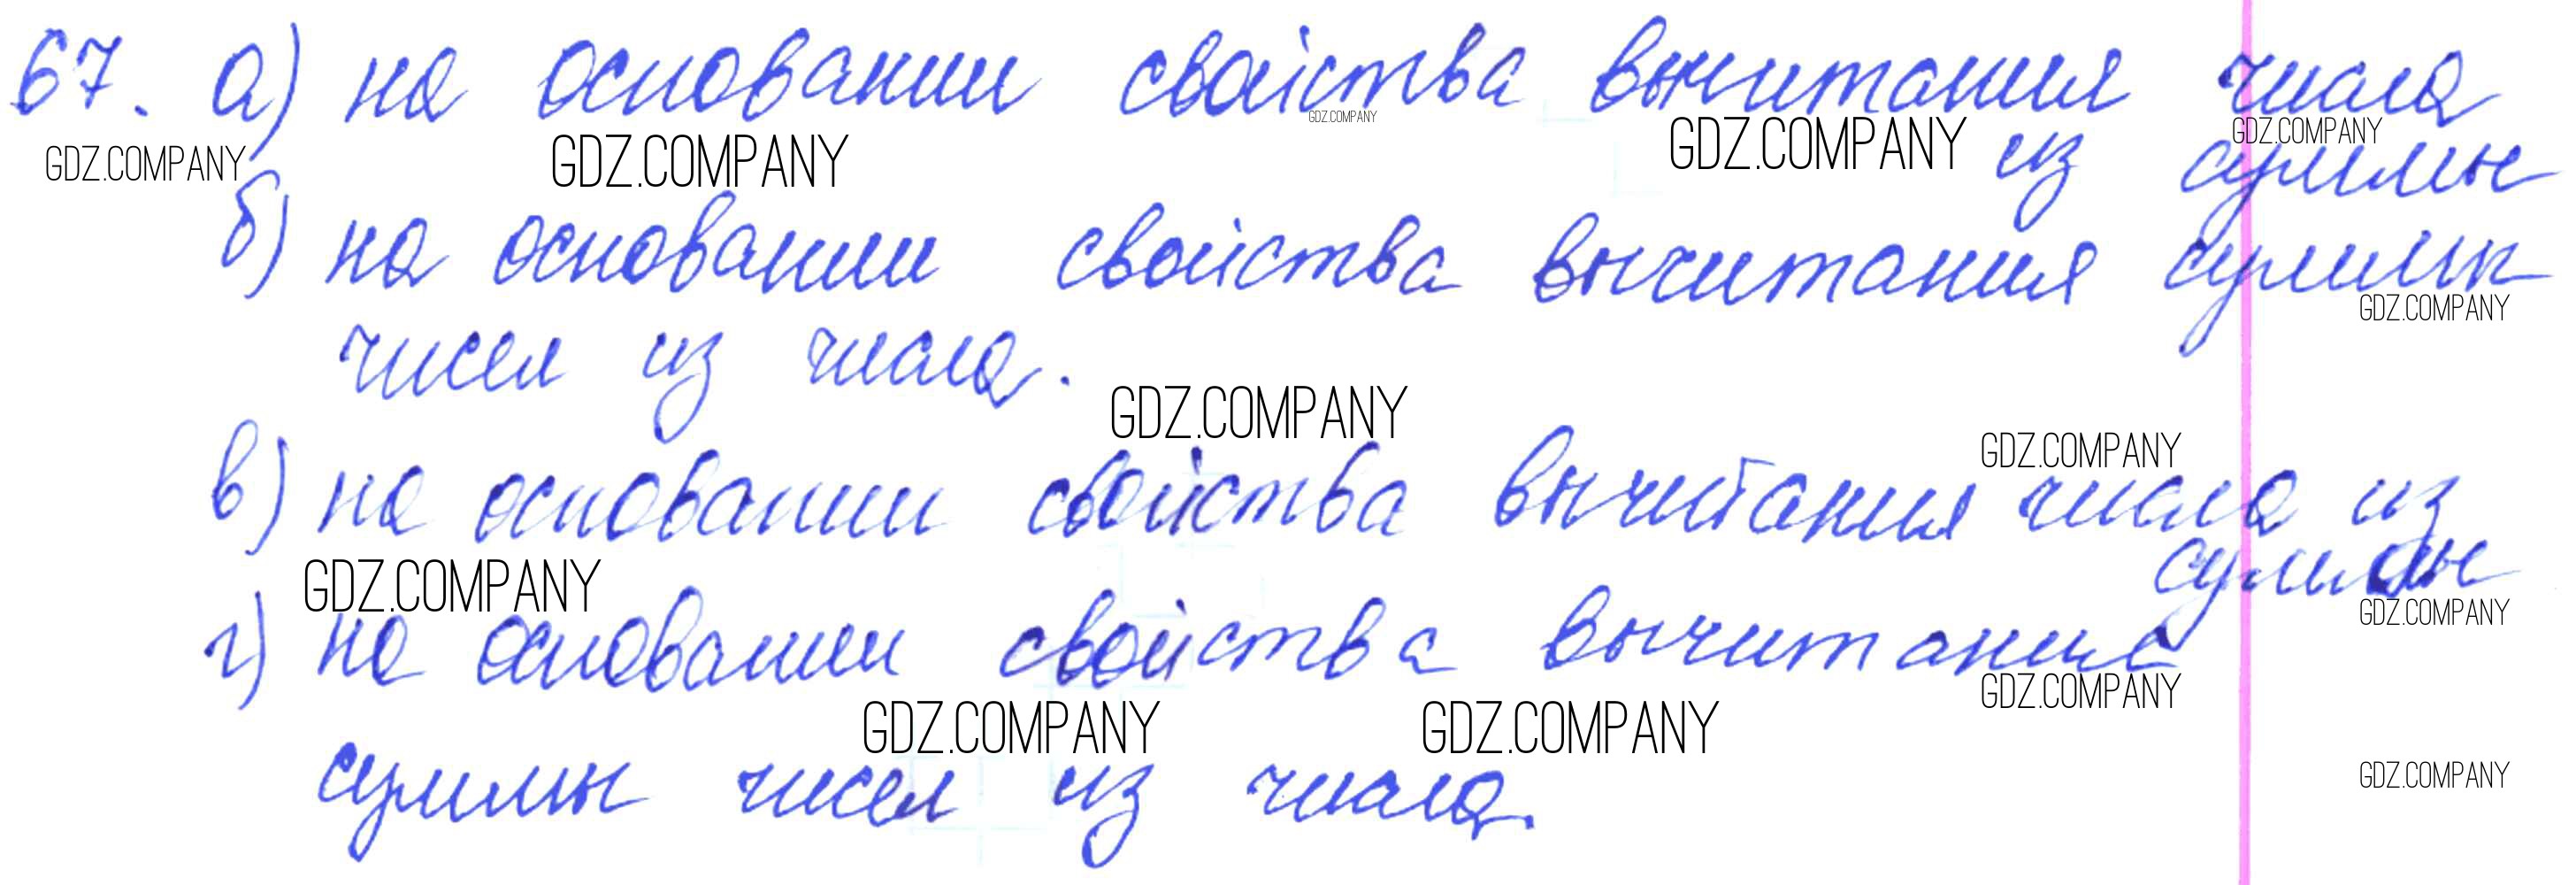 67. а) на основании свойства вычитания числа
GDZ.COMPANY
GDZ.COMPANY GDZ.COMPANY GDZ.COMPANY из суммы
GDZ.COMPANY
б) на основании свойства вычитания суммы
GDZ.COMPANY
чисел из числа.
GDZ.COMPANY
GDZ.COMPANY
в) на основании свойства вычитания числа из
суммы
GDZ.COMPANY
GDZ.COMPANY
г) на основании свойства вычитания
GDZ.COMPANY
GDZ.COMPANY GDZ.COMPANY
суммы чисел из числа.
GDZ.COMPANY